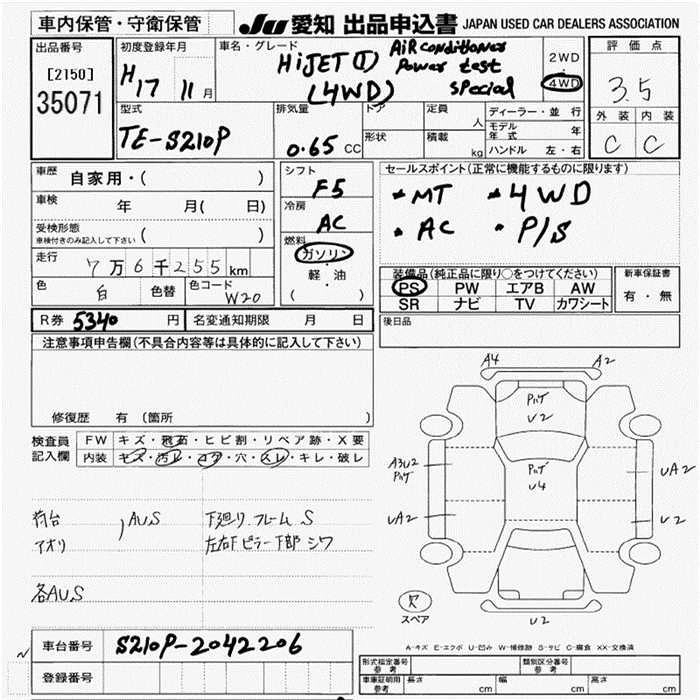 車内保管・守衛保管
JU 愛知 出品申込書 JAPAN USED CAR DEALERS ASSOCIATION
出品番号
[2150]
35071
初度登録年月
H17 11月
車名・グレード
HiJET ① Air conditioner
Power test
(4WD) special
2WD
4WD
評価点
3.5
外装 内装
C C
型式
TE-S210P
排気量
0.65 CC
ドア
形状
定員 人
積載 kg
ディーラー・並行
モデル年式 年
ハンドル 左・右
車歴 自家用・( )
車検 年 月( 日)
受検形態
車検付きのみ記入して下さい ( )
走行 7万6千255km
色 白 色替 色コード W20
シフト
F5
冷房
AC
燃料
ガソリン
・
軽・油
( )
セールスポイント(正常に機能するものに限ります)
・MT ・4WD
・AC ・P/S
装備品(純正品に限り○をつけてください)
PS PW エアB AW
SR ナビ TV カワシート
新車保証書
有・無
R券 5340 円 名変通知期限 月 日
後日品
注意事項申告欄(不具合内容等は具体的に記入して下さい)
修復歴 有 (箇所 )
検査員記入欄
FW キズ・飛石・ヒビ割・リペア跡・X要
内装 キズ・汚レ・コゲ・穴・スレ・キレ・破レ
荷台 , AU.S 下廻り. フレーム S
アオリ 左右下ピラー下部 シワ
各AU.S
A4 A2
U2
U4
A3U2
UA2
UA2
U2
U2
欠
スペア
A-キズ E-エクボ U-凹み W-補修跡 S-サビ C-腐食 XX-交換済
車台番号 S210P-2042206
登録番号
形式指定番号 参考 類別区分番号 参考
車庫証明用 参考 長さ cm 幅 cm 高さ cm